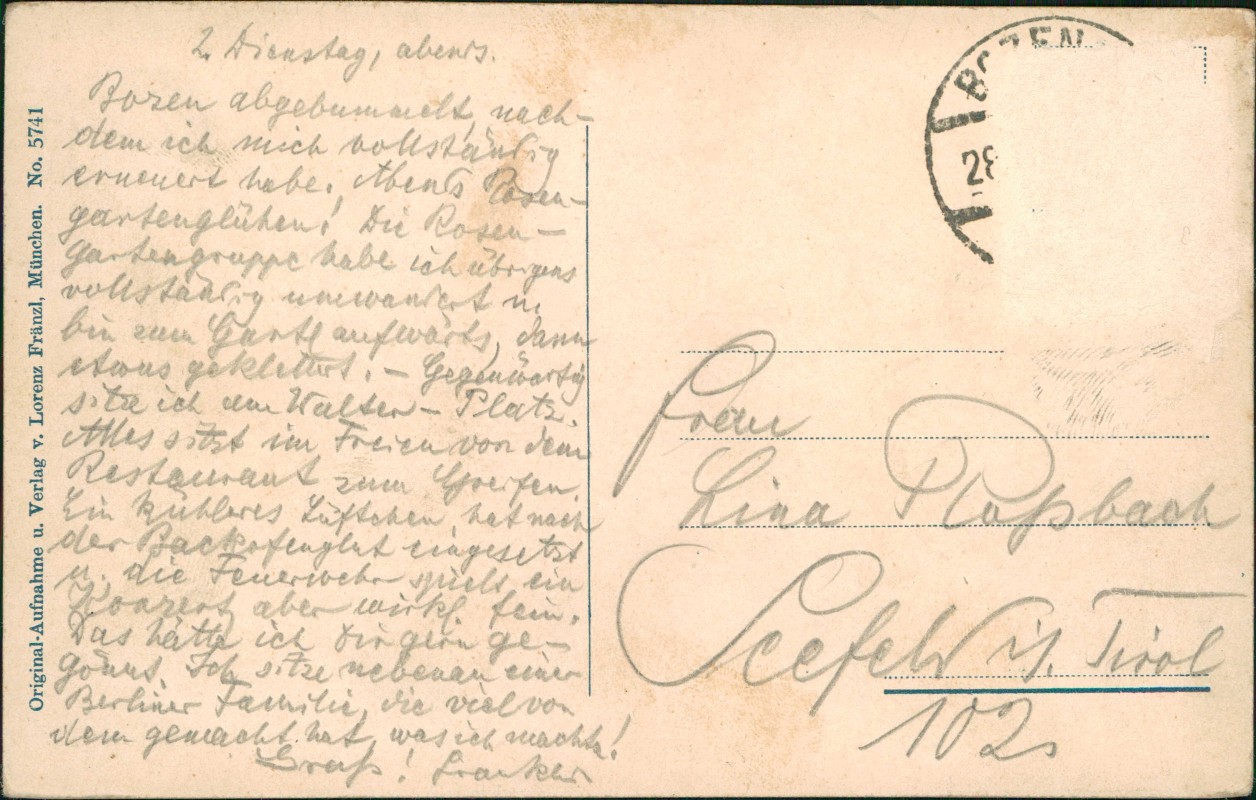 2. Dienstag, abends.
Bozen abgebummelt, nach-
dem ich mich vollständig
erneuert habe. Abends Rosen-
gartenglühen! Die Rosen-
gartengruppe habe ich übrigens
vollständig umwandert u.
bin zum Gartl aufwärts, dann
etwas geklettert. – Gegenwärtig
sitze ich am Walter-Platz.
Alles sitzt im Freien vor dem
Restaurant zum Greifen.
Ein kühleres Lüftchen hat nach
der Backofenglut eingesetzt
u. die Feuerwehr spielt ein
Konzert, aber wirkl. fein.
Das hätte ich dir gern ge-
gönnt. Ich sitze nebenan einer
Berliner Familie, die viel von
dem gemacht hat, was ich machte!
Gruß!
Original-Aufnahme u. Verlag v. Lorenz Fränzl, München. No. 5741
BOZEN
28
Frau
Lina Ploßbach
Seefeld i/. Tirol
102